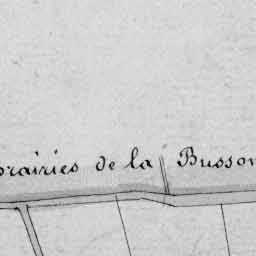 prairies de la Busson